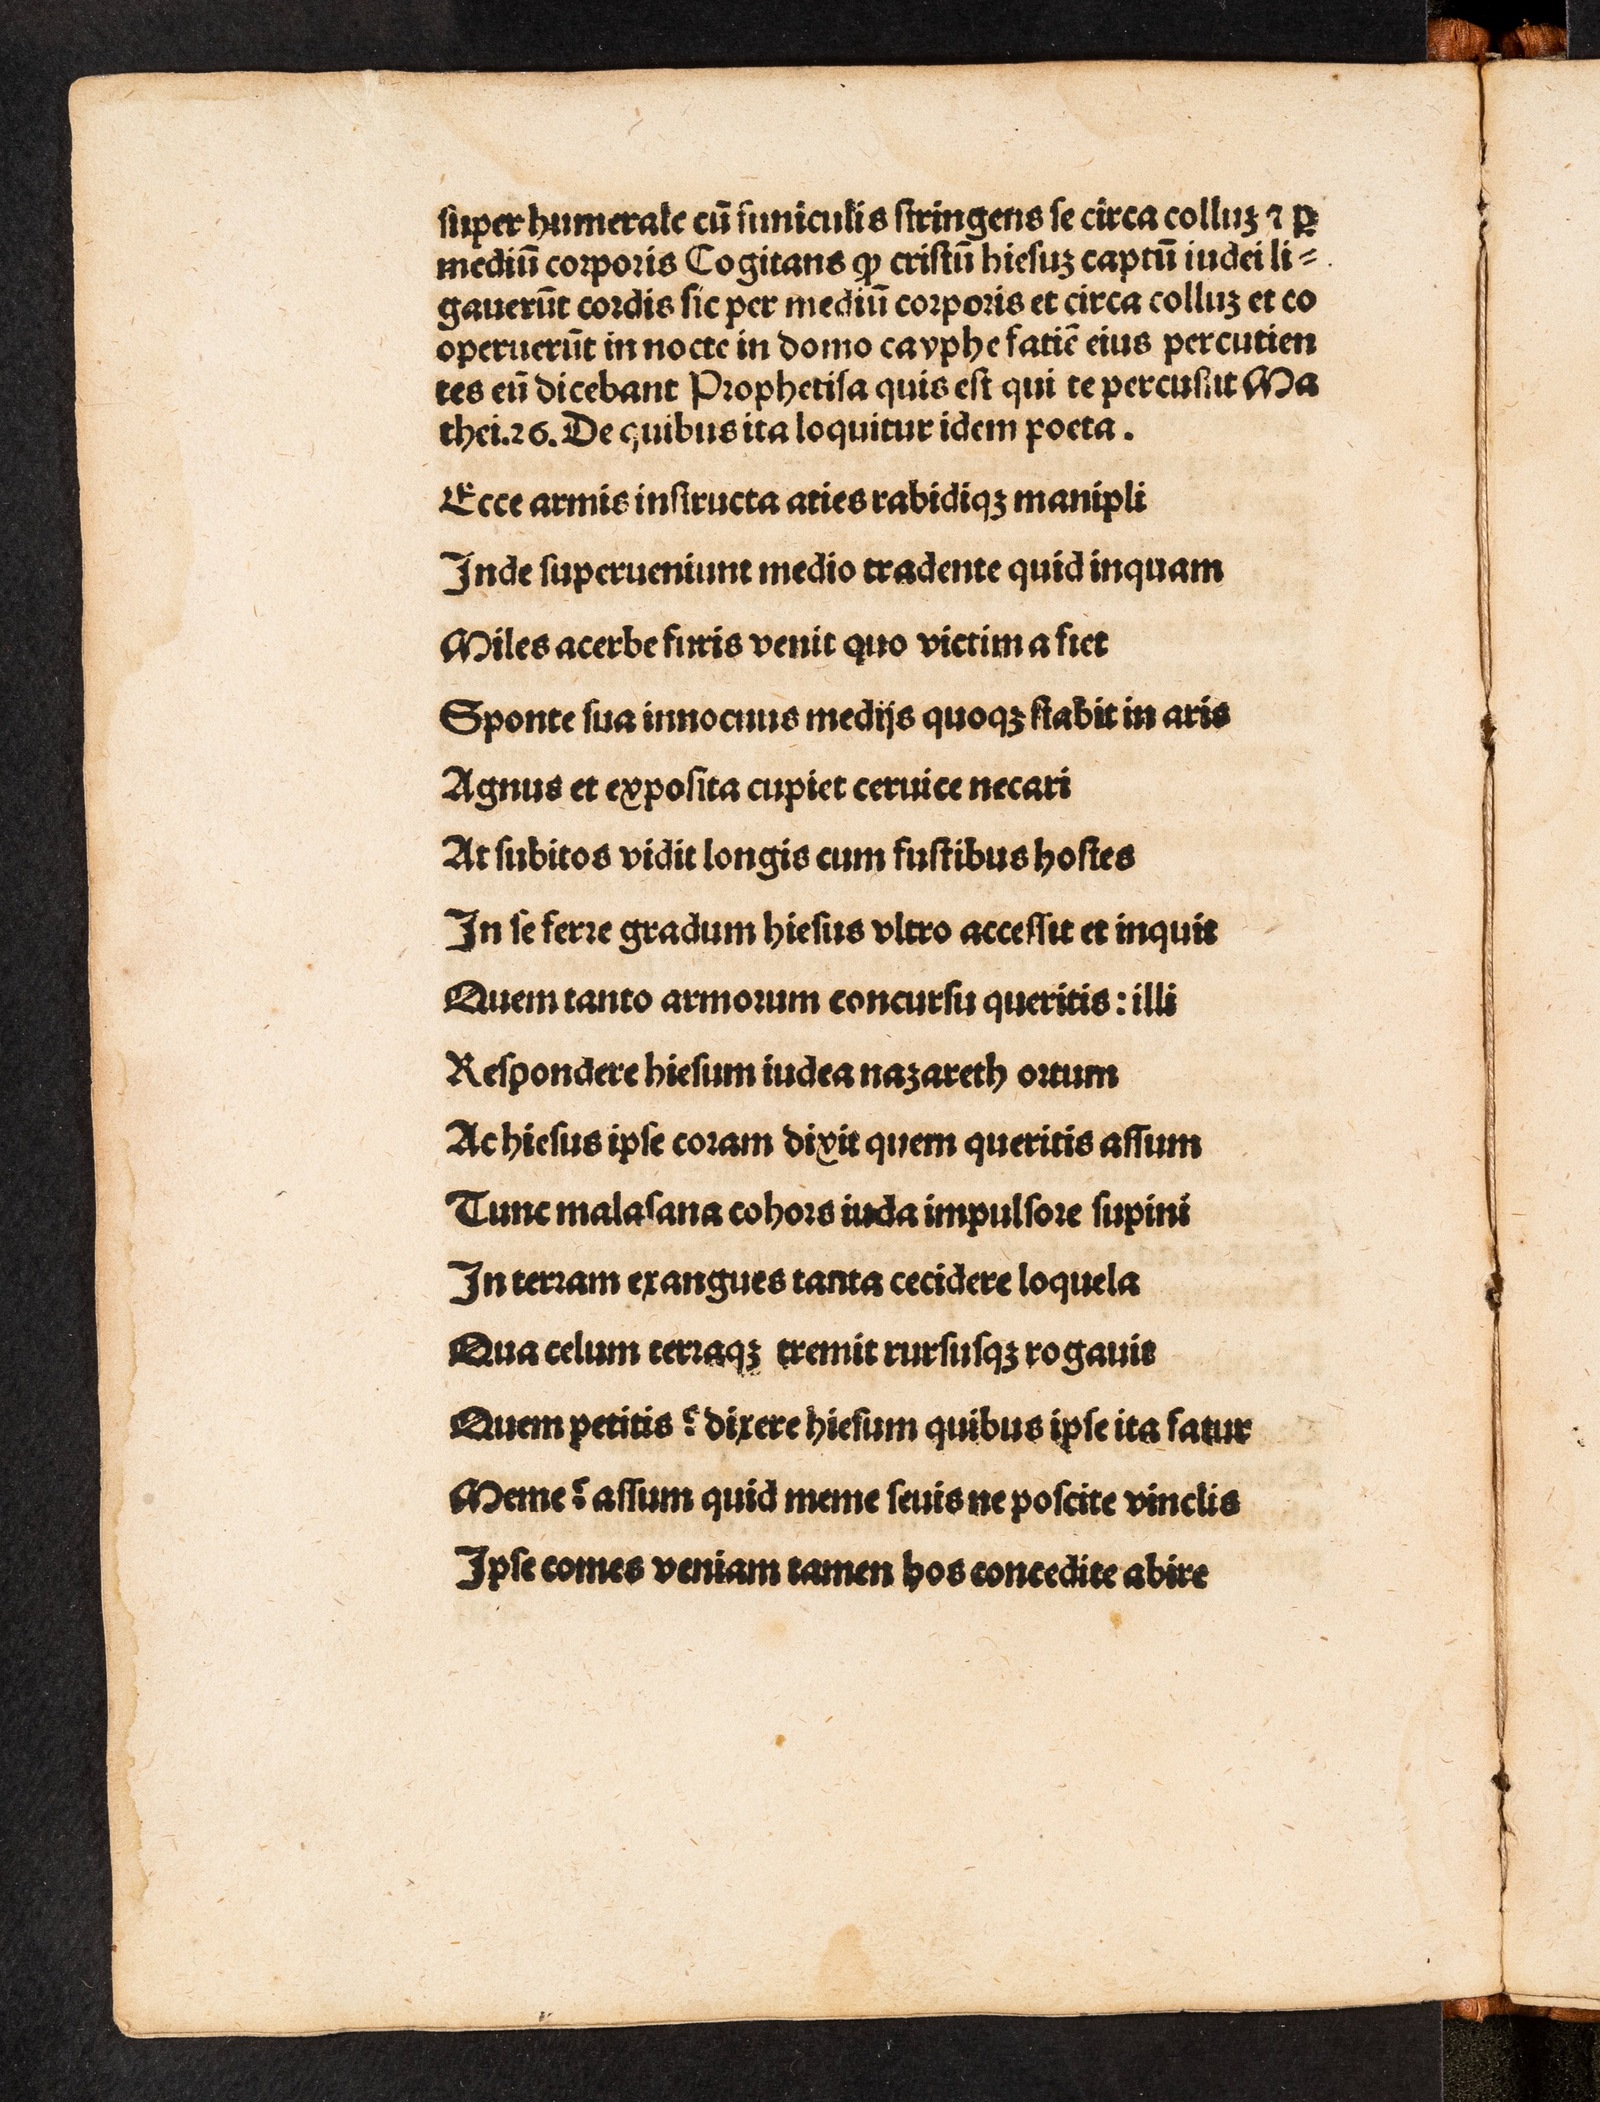 ſuper humerale cū funiculis ſtringens ſe circa colluꝫ ⁊ ꝑ
mediū corporis Cogitans ꝙ criſtū hieſuꝫ captū iudei li⸗
gauerūt cordis ſic per mediū corporis et circa colluꝫ et co
operuerūt in nocte in domo cayphe fatiē eius percutien
tes eū dicebant Prophetiſa quis eſt qui te percuſſit Ma
thei.26. De quibus ita loquitur idem poeta .
Ecce armis inſtructa aties rabidiqꝫ manipli
Inde ſuperueniunt medio tradente quid inquam
Miles acerbe furis venit quo victima fiet
Sponte ſua innocuus medijs quoqꝫ ſtabit in aris
Agnus et expoſita cupiet ceruice necari
At ſubitos vidit longis cum fuſtibus hoſtes
In ſe ferre gradum hieſus vltro acceſſit et inquit
Quem tanto armorum concurſu queritis : illi
Reſpondere hieſum iudea nazareth ortum
Ac hieſus ipſe coram dixit quem queritis aſſum
Tunc malaſana cohors iuda impulſore ſupini
In terram exangues tanta cecidere loquela
Qua celum terraqꝫ tremit rurſuſqꝫ rogauit
Quem petitis ? dixere hieſum quibus ipſe ita fatur
Meme ? aſſum quid meme ſeuis ne poſcite vinclis
Ipſe comes veniam tamen hos concedite abire